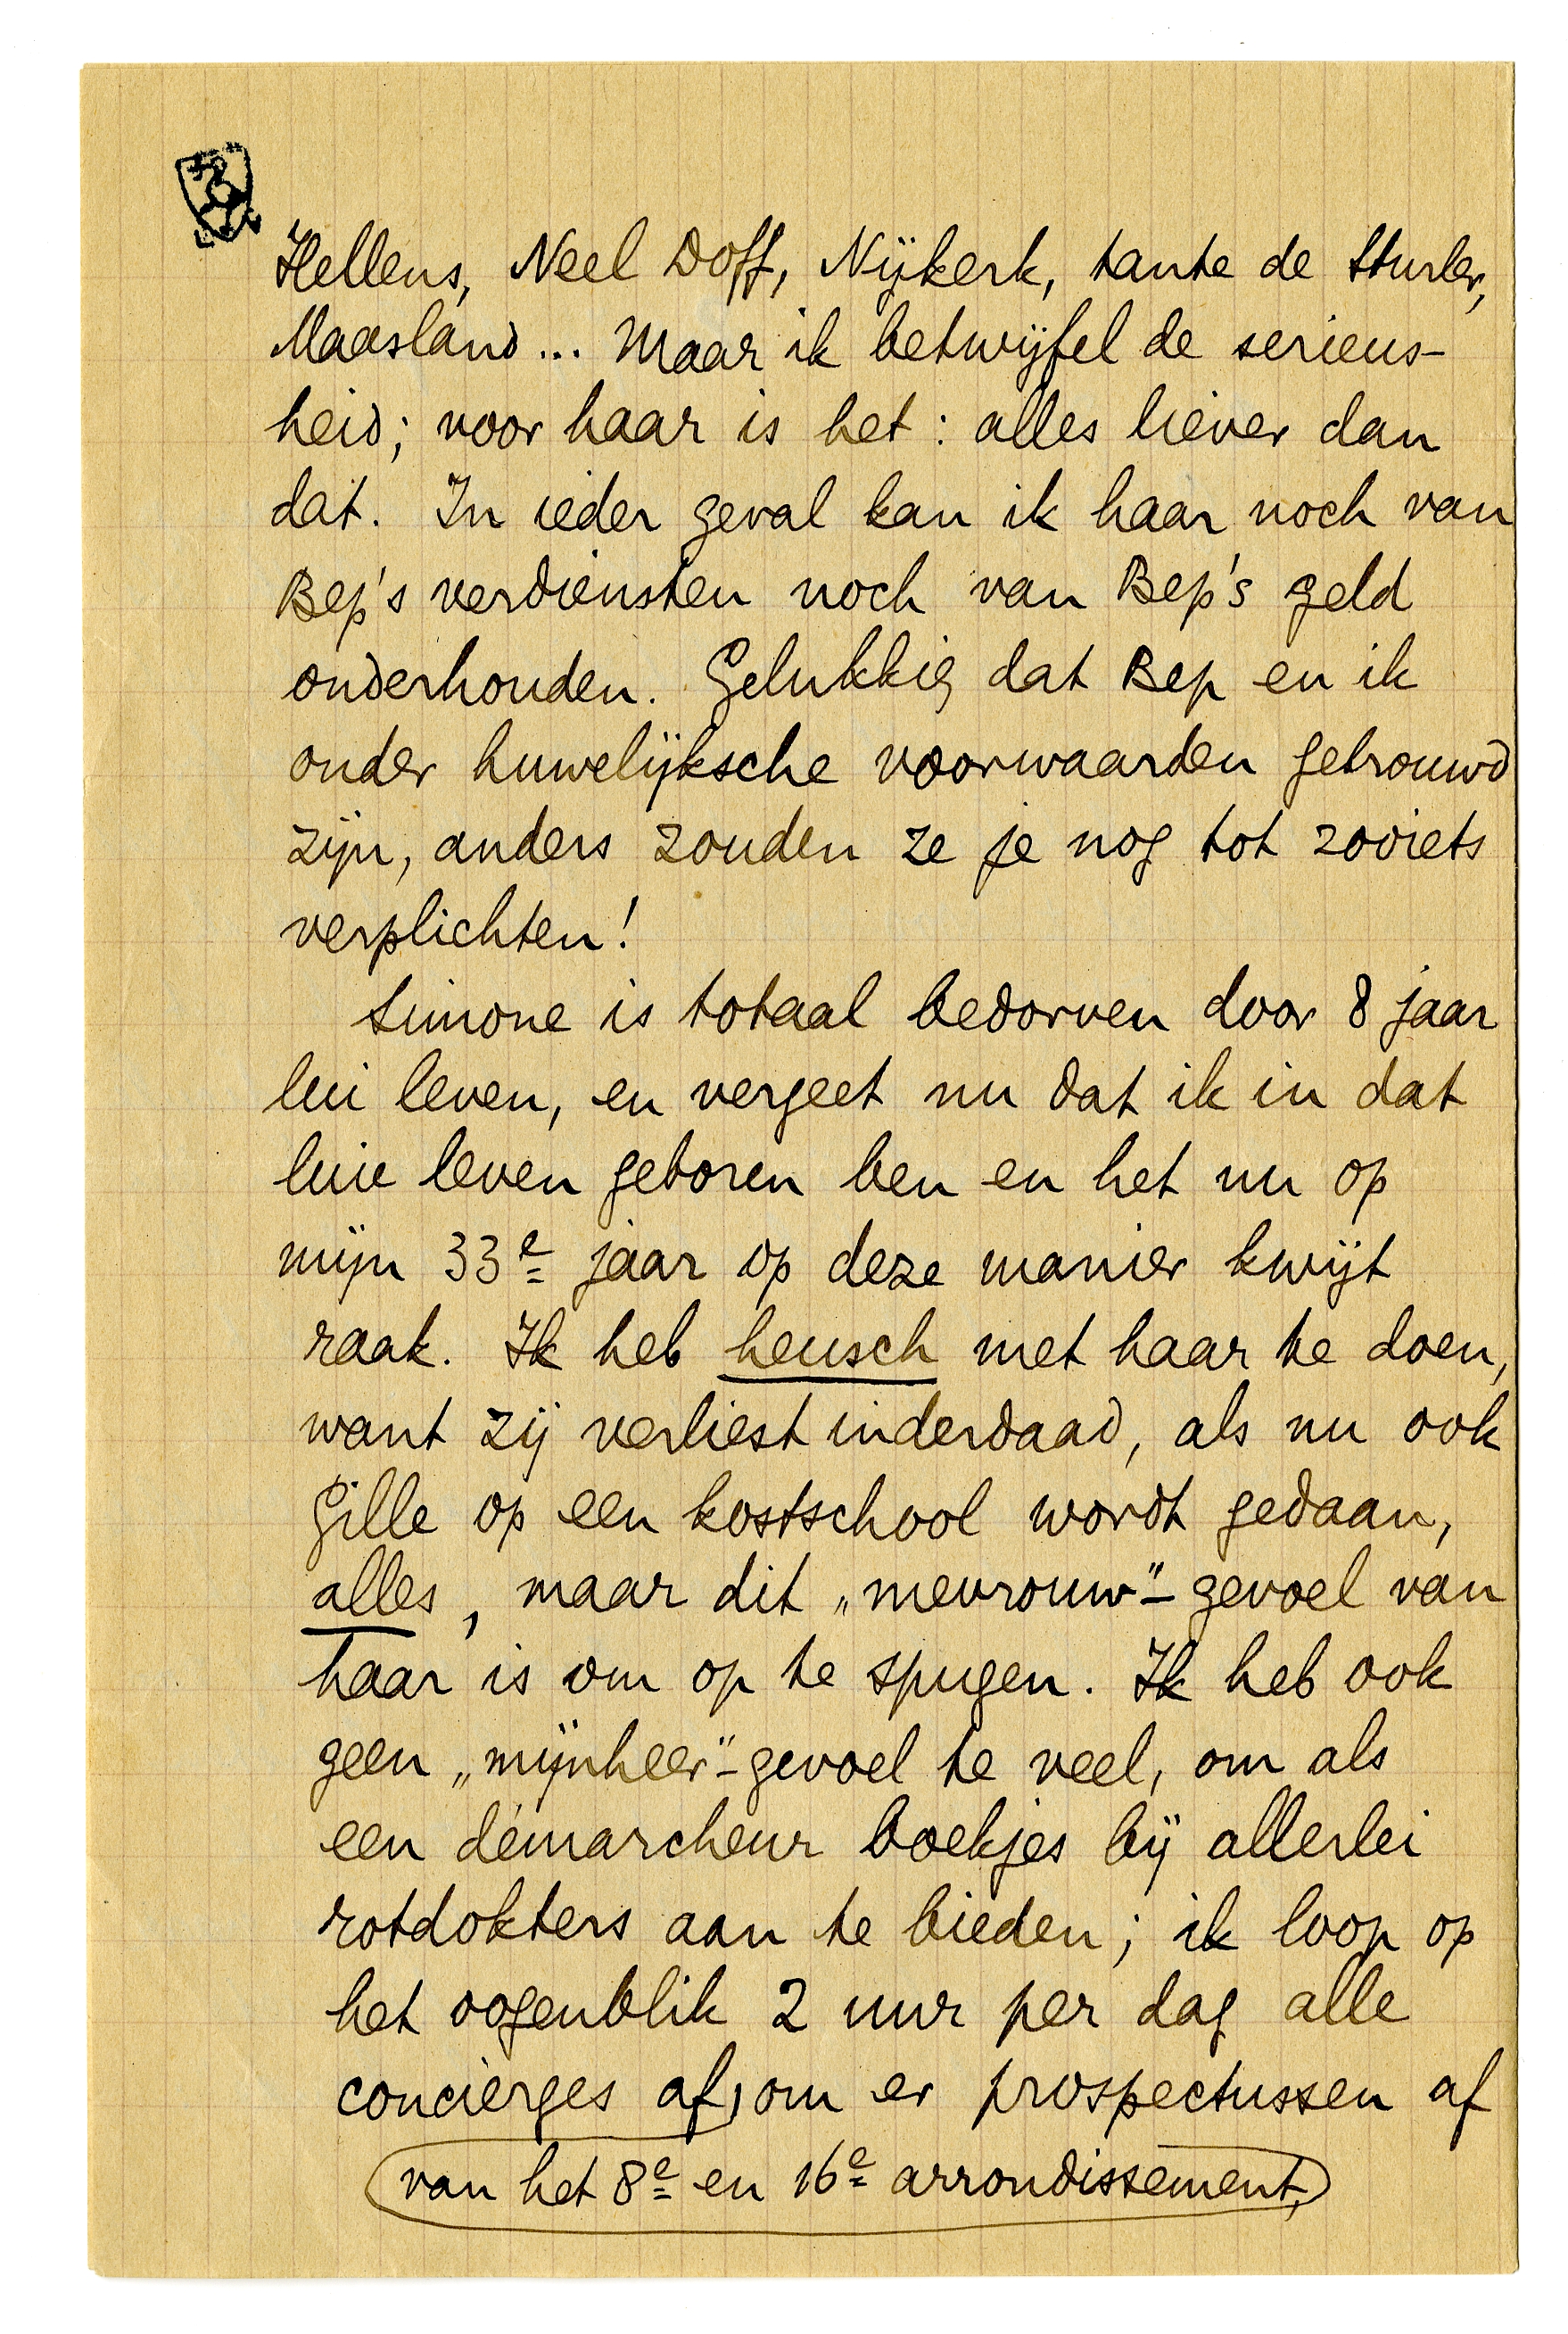 Hellens, Neel Doff, Nijkerk, tante de Sturler,
Maasland... Maar ik betwijfel de serieus-
heid; voor haar is het: alles liever dan
dat. In ieder geval kan ik haar noch van
Bep's verdiensten noch van Bep's geld
onderhouden. Gelukkig dat Bep en ik
onder huwelijksche voorwaarden getrouwd
zijn, anders zouden ze je nog tot zooiets
verplichten!
Simone is totaal bedorven door 8 jaar
lui leven, en vergeet nu dat ik in dat
luie leven geboren ben en het nu op
mijn 33e jaar op deze manier kwijt
raak. Ik heb heusch met haar te doen,
want zij verliest inderdaad, als nu ook
Gille op een kostschool wordt gedaan,
alles, maar dit „mevrouw"-gevoel van
haar is om op te spugen. Ik heb ook
geen „mijnheer"-gevoel te veel, om als
een démarcheur boekjes bij allerlei
rotdokters aan te bieden; ik loop op
het oogenblik 2 uur per dag alle
concierges af, om er prospectussen af
van het 8e en 16e arrondissement,